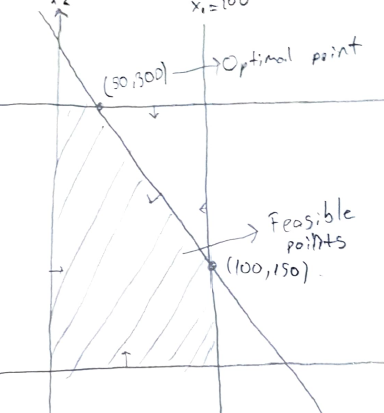 x₁=100
(50,300) → Optimal point
Feasible
points
(100,150)